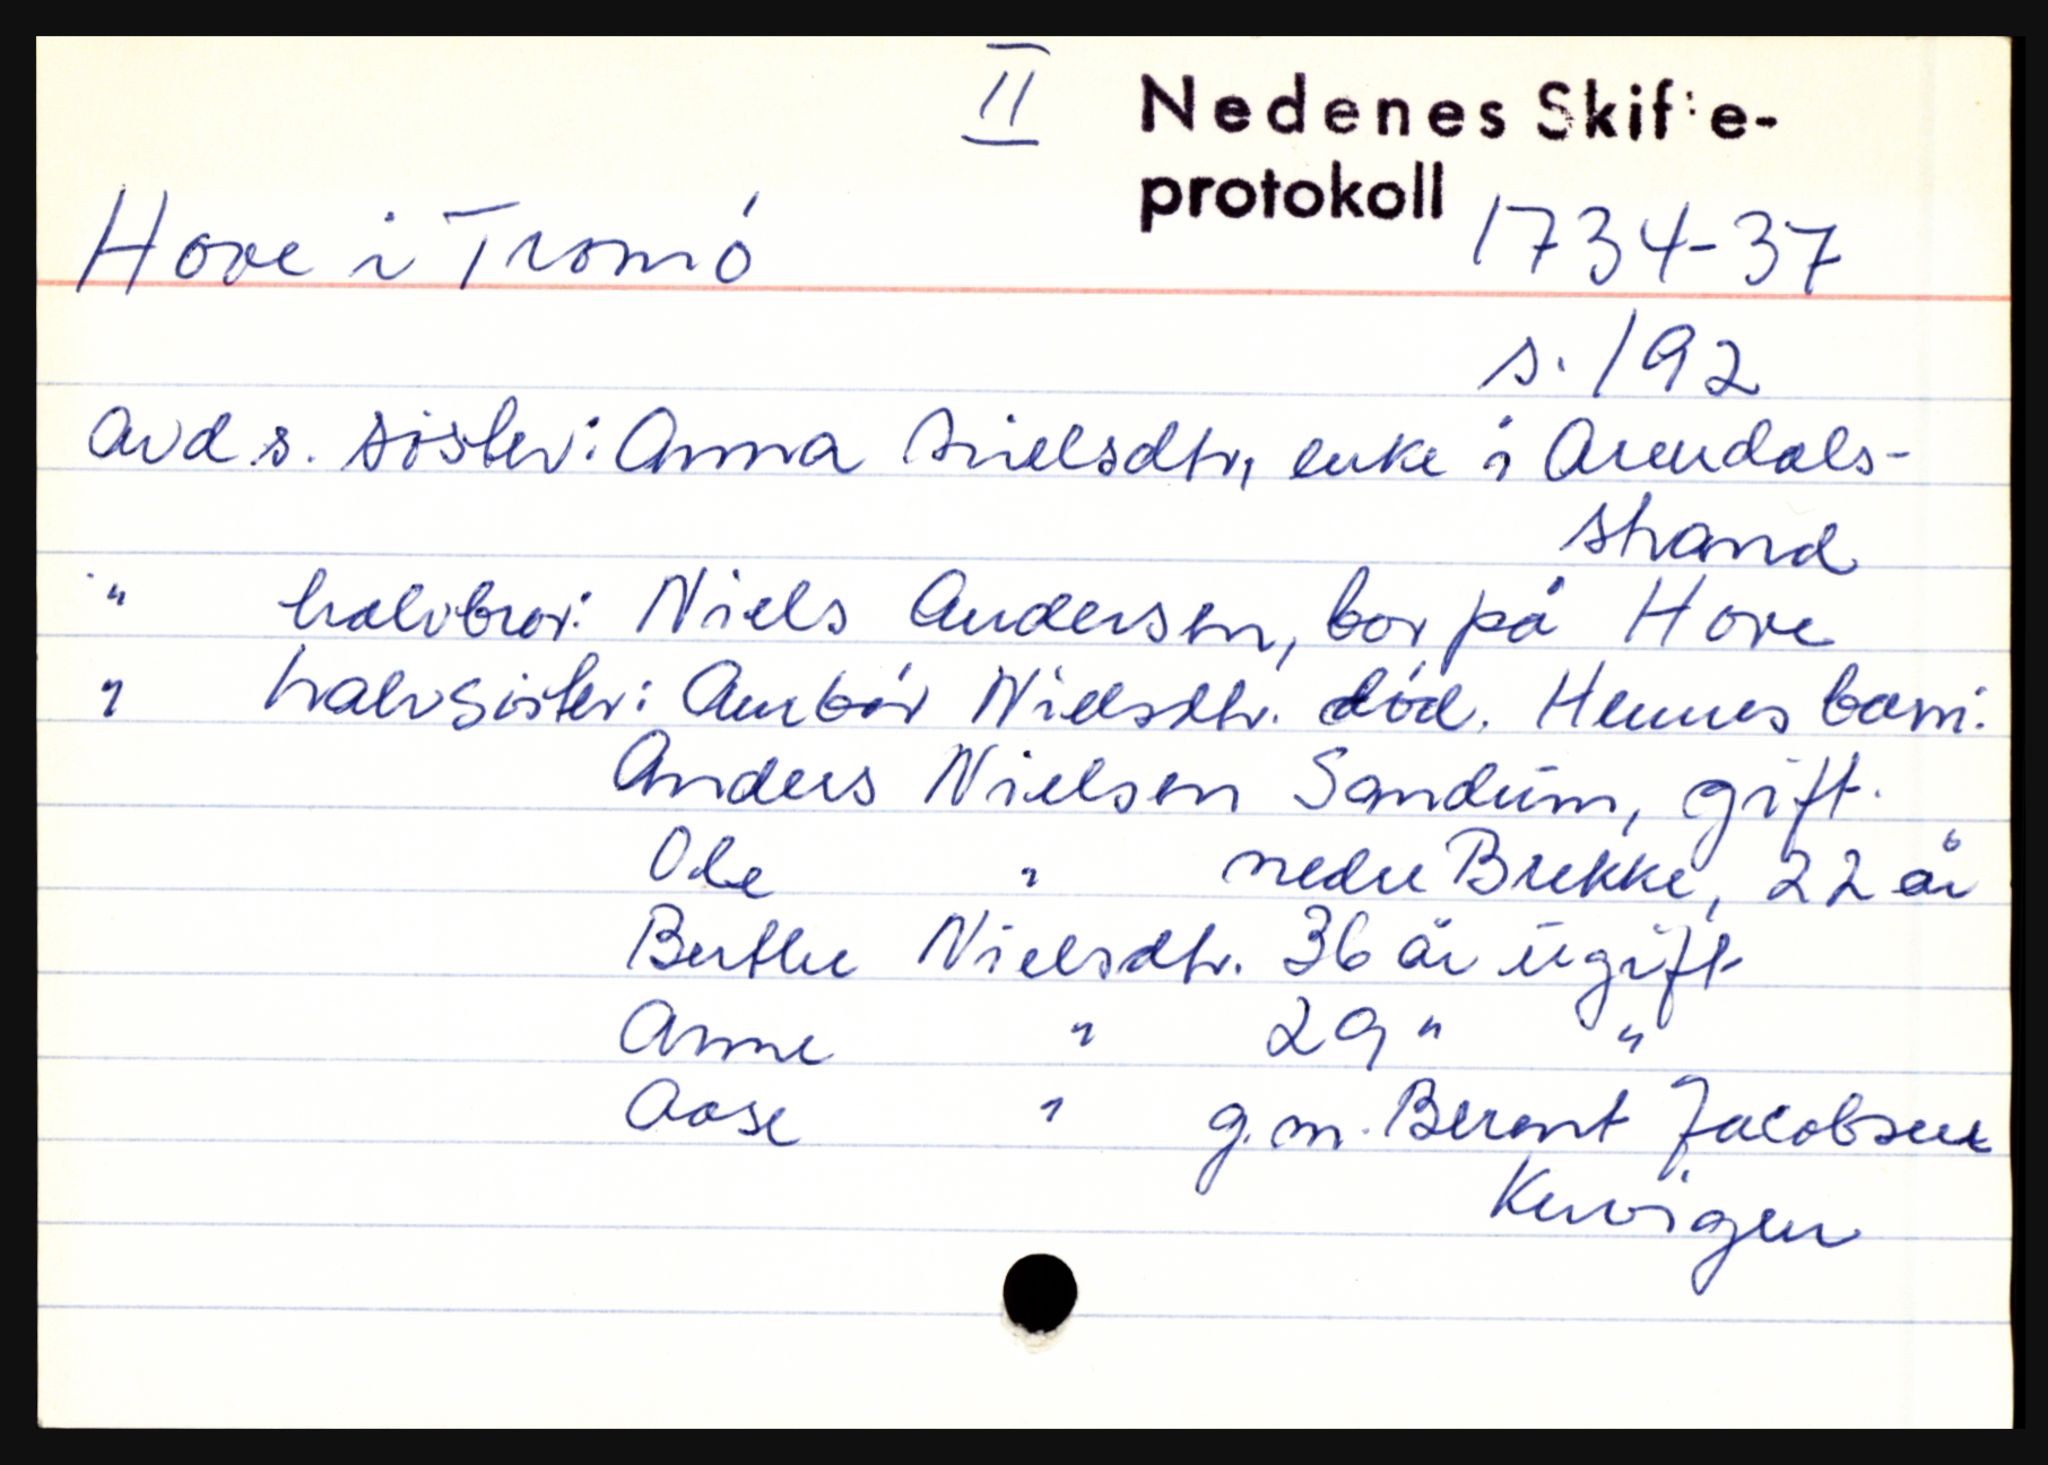 II Nedenes Skifte-
protokoll
Hove i Tromö 1734-37
s. 192
avd.s. søster: Anna Nielsdtr, enke i Arendals-
strand
" halvbror: Niels Andersen, bor på Hove
" halvsøster: Anbór Nielsdtr. död. Hennes barn:
Anders Nielsen Sandum, gift.
Ole " nedre Brekke, 22 år
Berthe Nielsdtr. 36 år ugift
Anne " 29 " "
Aase " g.m. Berent Jacobsen
Kuvigen